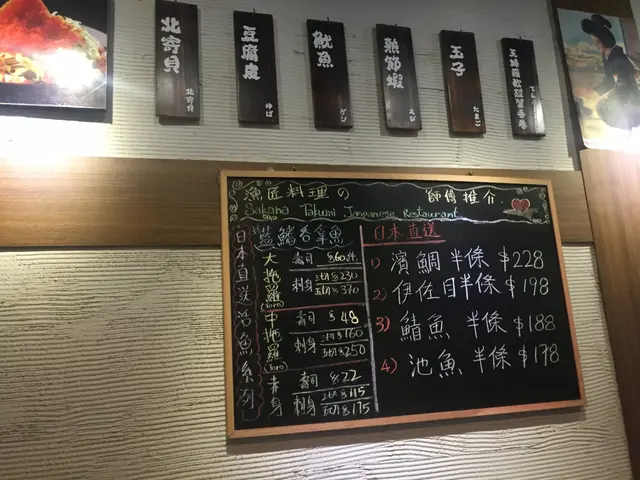 北寄貝
豆腐皮
ゆば
魷魚
ゲソ
熟節蝦
えび
玉子
たまご
漁匠料理の 師傅推介
Sakana Takumi Janpanese Restaurant
日本直送活魚系列
藍鰭吞拿魚
大拖羅 (Toro)
壽司 $60/件
刺身 三切$230
五切$370
中拖羅 (Toro)
壽司 $48
刺身 三切$160
五切$250
赤身
壽司 $22
刺身 三切$115
五切$175
日本直送
1) 濱鯛 半條 $228
2) 伊佐目半條 $198
3) 鯖魚 半條 $188
4) 池魚 半條 $178